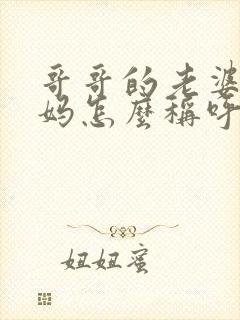 哥哥的老婆
妈怎麼稱呼
妞妞蜜